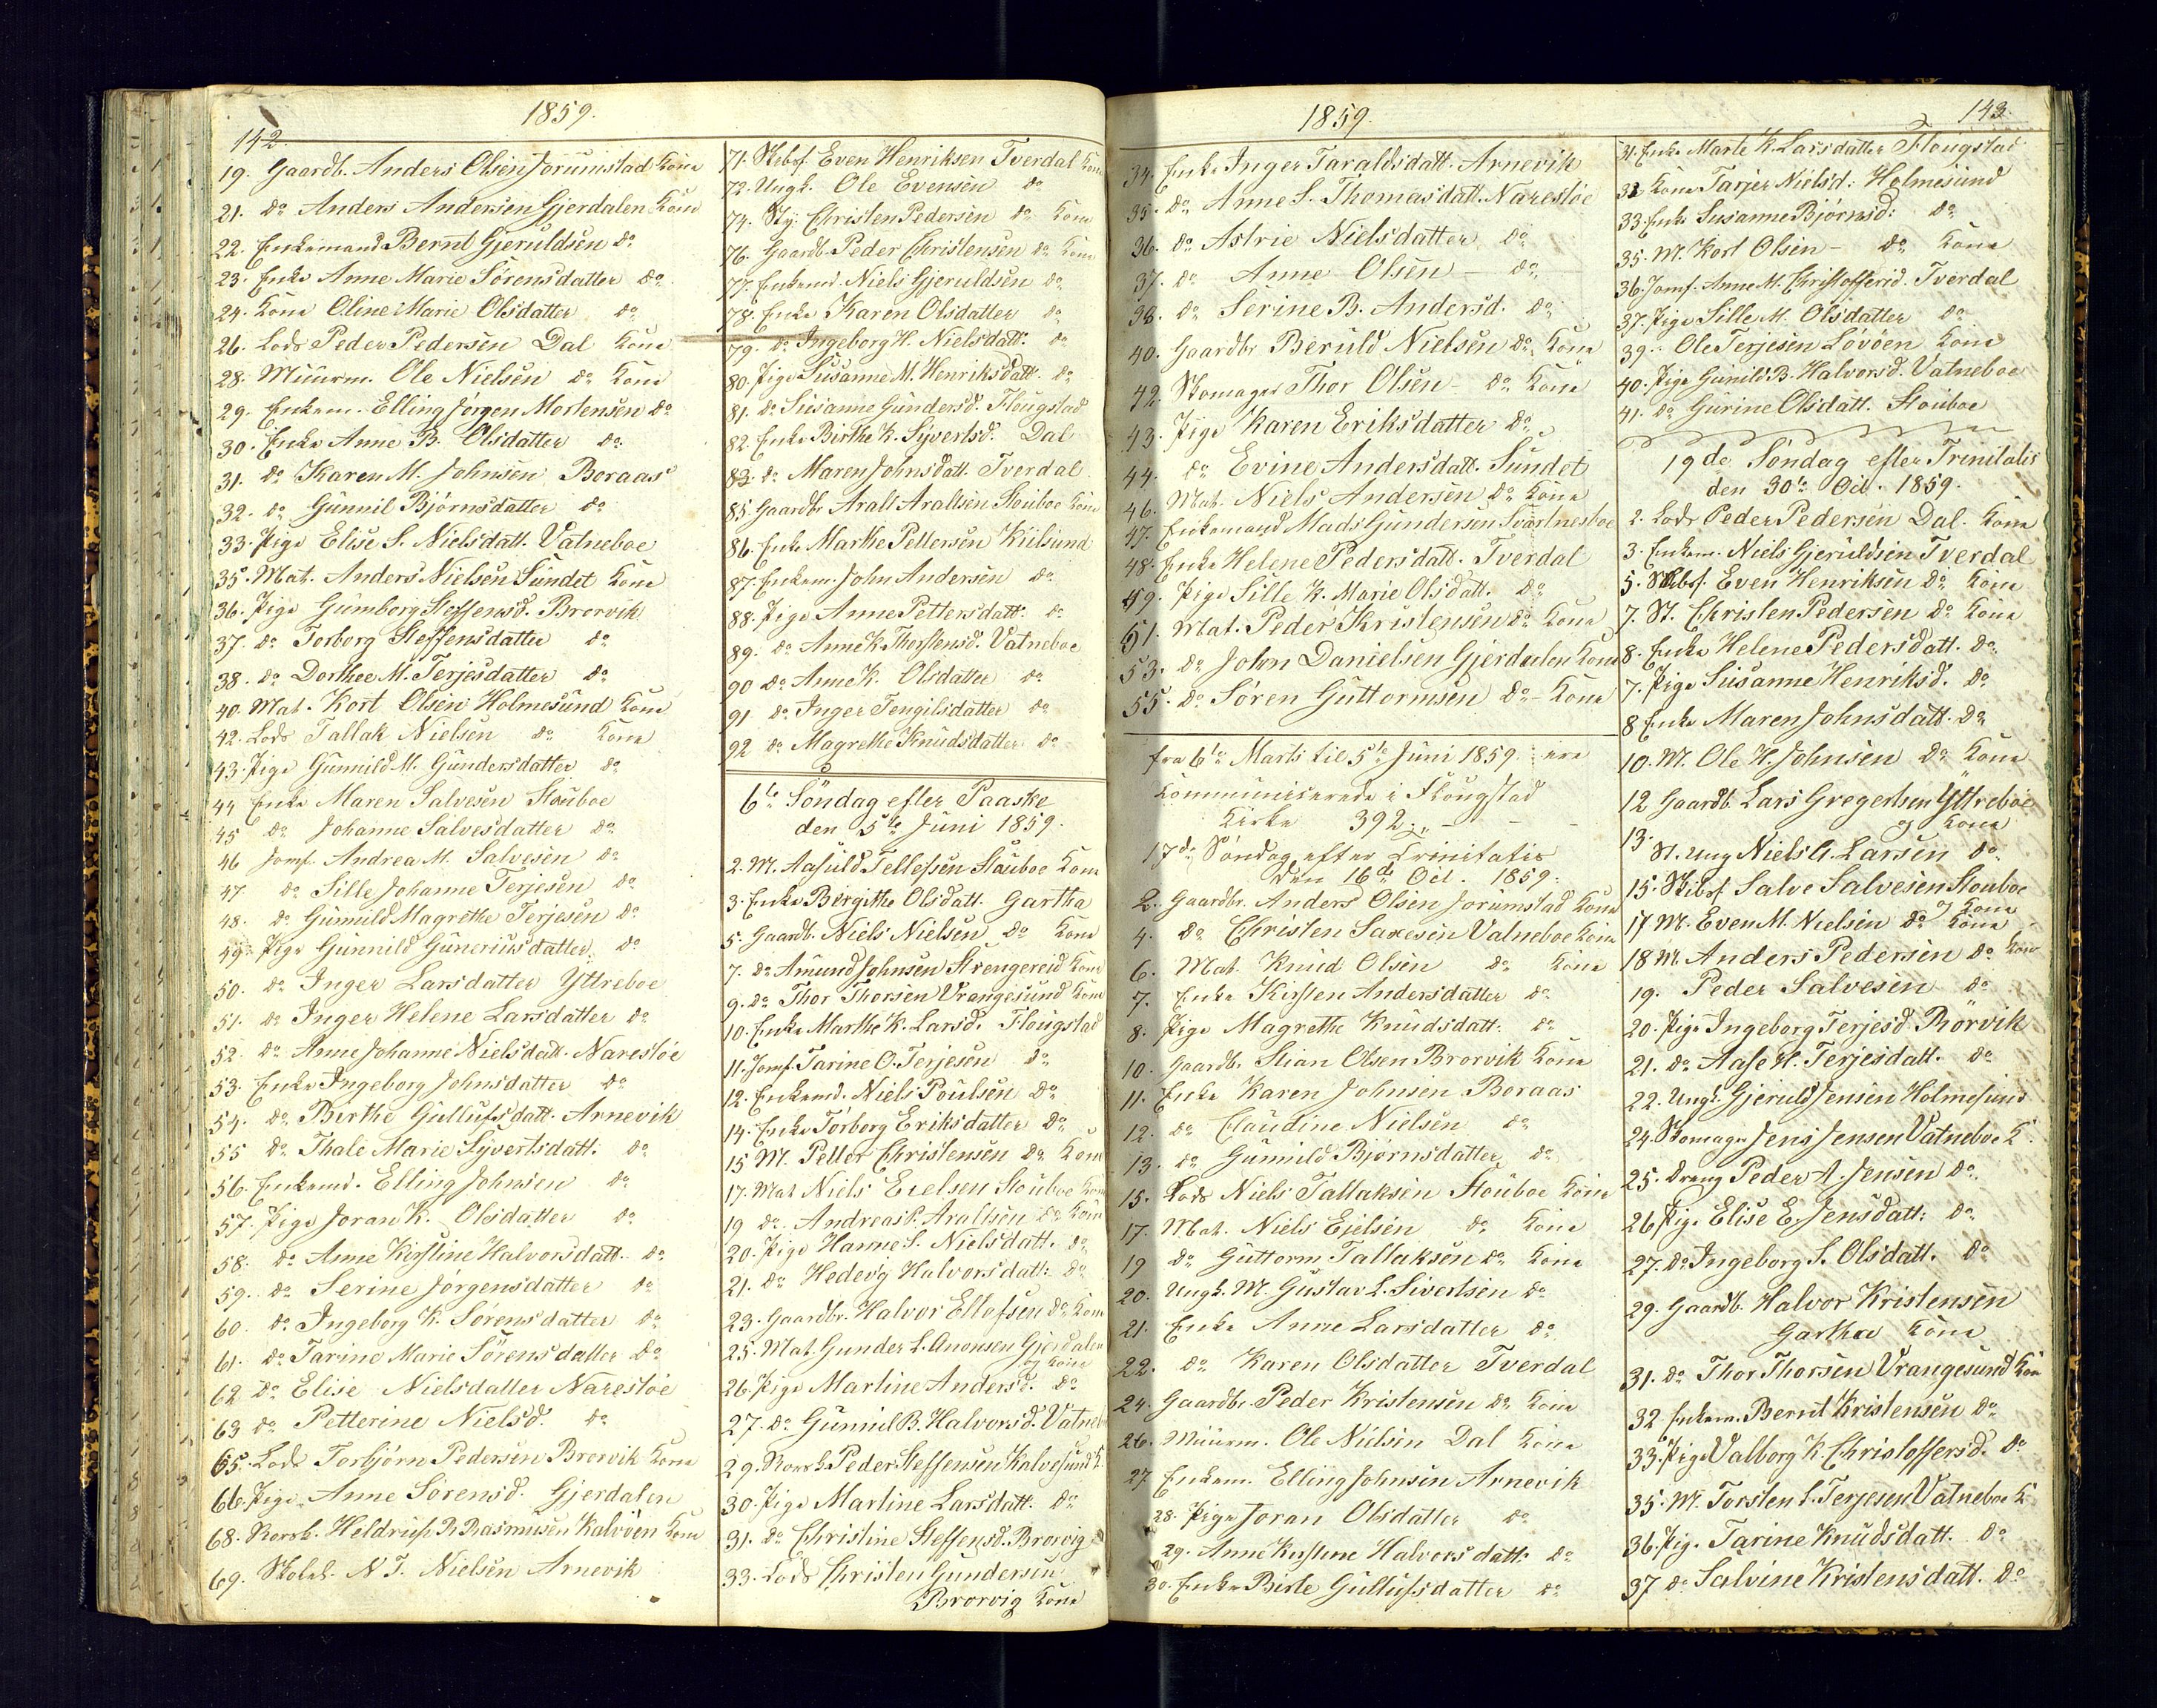 142.
1859.
19. Gaardb. Anders Olsen Jorumstad Kone
21. do Anders Andersen Gjerdalen Kone
22. Enkemand Bernt Gjeruldsen do
23. Enke Anne Marie Sørensdatter do
24. Kone Oline Marie Olsdatter do
26. Lods Peder Pedersen Dal Kone
28. Muurm. Ole Nielsen do Kone
29. Enkem. Elling Jørgen Mortensen do
30. Enke Anne B. Olsdatter do
31. do Karen M. Johnsen Boraas
32. do Gunnil Bjørnsdatter do
33. Pige Elise S. Nielsdatt. Vatneboe
35. Mat. Anders Nielsen Sundet Kone
36. Pige Gumborg Steffensd. Brorvik
37. do Torborg Steffensdatter do
38. do Dorthee M. Terjesdatter do
40. Mat. Kort Olsen Holmesund Kone
42. Lods Tallak Nielsen do Kone
43. Pige Gunnild M. Gundersdatter do
44 Enke Maren Salvesen Stouboe
45 do Johanne Salvesdatter do
46 Jomf. Andrea M. Salvesen do
47. do Sille Johanne Terjesen do
48. do Gunnild Magrethe Terjesen do
49. Pige Gunnild Guneriusdatter do
50. do Inger Larsdatter Yttreboe
51. do Inger Helene Larsdatter do
52. do Anne Johanne Nielsdatt. Narestøe
53. Enke Ingeborg Johnsdatter do
54. do Birthe Gullufsdatt. Arnevik
55 do Thale Marie Syvertsdatt. do
56. Enkemd. Elling Johnsen do
57. Pige Joran K. Olsdatter do
58. do Anne Kirstine Halvorsdatt. do
59. do Serine Jørgensdatter do
60. do Ingeborg K. Sørensdatter do
61. do Tarine Marie Sørensdatter do
62 do Elise Nielsdatter Narestøe
63 do Petterine Nielsd. do
65. Lods Torbjørn Pedersen Brorvik Kone
66. Pige Anne Sørensd. Gjerdalen
68. Heldrich R. Rasmusen Kalvøen Kone
69. N. T. Nielsen Arnevik
71. Skibsf. Even Henriksen Tverdal Kone
72. Ungk. Ole Evensen do
74. Sty. Christen Pedersen do Kone
76. Gaardb. Peder Christensen do Kone
77. Enkemd. Niels Gjeruldsen do
78. Enke Karen Olsdatter do
79. do Ingeborg H. Nielsdatt. do
80. Pige Susanne M. Henriksdatt. do
81. do Susanne Gundersd. Flougstad
82 Enke Birthe K. Syvertsd. Dal
83. do Maren Johnsdatt. Tverdal
85. Gaardbr Aralt Araltsen Stouboe Kone
86. Enke Marthe Pettersen Kiilsund
87. Enkem. John Andersen do
88. Pige Anne Pettersdatt. do
89. do Anne K. Thorstensd. Vatneboe
90 do Anne K. Olsdatter do
91 do Inger Tengilsdatter do
92 do Magrethe Knudsdatter do
6te Söndag efter Paaske
den 5te Juni 1859.
2. M. Aasuld Tellefsen Stouboe Kone
3. Enke Birgithe Olsdatt. Gartha
5. Gaardb. Niels Nielsen do Kone
7. do Amund Johnsen Strengereid Kone
9. do Thor Thorsen Vrangesund Kone
10. Enke Marthe K. Larsd. Flougstad
11. Jomf. Tarine O. Terjesen do
12. Enkemd. Niels Poulsen do
14. Enke Torborg Eriksdatter do
15 M. Petter Christensen do Kone
17. Mat Niels Eielsen Stouboe Kone
19 do Andreas P. Araltsen do Kone
20. Pige Hanne S. Nielsdatt. do
21. do Hedevig Halvorsdatt: do
23. Gaardbr. Halvor Ellefsen do Kone
25. Mat. Gunder L. Anonsen Gjerdalen
og Kone
26. Pige Martine Andersd. do
27. do Gunnil B. Halvorsd. Vatneb
29. Peder Steffensen Kalvesund K.
30. Pige Martine Larsdatt. do
31. do Christine Steffensd. Brorvig
33. Lods Christen Gundersen
Brorvig Kone
1859.
143.
34. Enke Inger Taraldsdatt. Arnevik
35. do Anne S. Thomasdatt. Narestøe
36. do Astrie Nielsdatter do
37. do Anne Olsen - do
38. do Serine B. Andersd. do
40. Gaardbr Beruld Nielsen do Kone
42. Skomager Thor Olsen - do Kone
43. Pige Karen Eriksdatter do
44. do Evine Andersdatt. Sundet
46. Mat. Niels Andersen do Kone
47. Enkemand Mads Gundersen Svartnesboe
48. Enke Helene Pedersdatt. Tverdal
49. Pige Sille K. Marie Olsdatt. do
51. Mat. Peder Kristensen do Kone
53. do John Danielsen Gjerdalen Kone
55. do Søren Guttormsen do - Kone
fra 6te Marts til 5te Juni 1859. ere
Kommunicerede i Flougstad
Kirke 392.
17de Søndag efter Trinitatis
den 16de Oct. 1859.
2. Gaardbr. Anders Olsen Jorumstad Kone
4. do Christen Saxesen Vatneboe Kone
6. Mat. Knud Olsen do Kone
7. Enke Kirsten Andersdatter do
8. Pige Magrethe Knudsdatt. do
10. Gaardb. Stian Olsen Brorvik Kone
11. Enke Karen Johnsen Boraas
12. do Claudine Nielsen do
13. do Gunnild Bjørnsdatter do
15. Lods Niels Tallaksen Stouboe Kone
17. Mat. Niels Eielsen do Kone
19 do Guttorm Tallaksen do Kone
20. Ungk. M. Gustav L. Sivertsen do
21. Enke Anne Larsdatter do
22. do Karen Olsdatter Tverdal
24. Gaardbr. Peder Kristensen do Kone
26. Muurm. Ole Nielsen Dal Kone
27 Enkem. Elling Johnsen Arnevik
28. Pige Joran Olsdatter do
29. Anne Kirstine Halvorsdatt. do
30. Enke Birte Gullufsdatter do
31. Enke Marte K. Larsdatter Flougstad
32 Kone Tarjer Nielsd: Holmesund
33. Enke Susanne Bjørnsd: do
35. M. Kort Olsen - do Kone
36. Jomf. Anne M. Christoffersd. Tverdal
37. Pige Sille M. Olsdatter do
39. Ole Terjesen Løvøen Kone
40. Pige Gunild B. Halvorsd. Vatneboe
41. do Gurine Olsdatt. Stouboe
19de Søndag efter Trinitatis
den 30te Oct. 1859.
2. Lods Peder Pedersen Dal. Kone
3. Enkem. Niels Gjeruldsen Tverdal
5. Skibsf. Even Henriksen do Kone
7. St. Christen Pedersen do Kone
8. Enke Helene Pedersdatt. do
7. Pige Susanne Henriksd. do
8 Enke Maren Johnsdatt. do
10. M. Ole H. Johnsen do Kone
12 Gaardb. Lars Gregertsen Yttreboe
og Kone
13. St. Ung Niels A. Larsen do
15. Skibsf. Salve Salvesen Stouboe
og Kone
17 M. Even M. Nielsen do Kone
18 M. Anders Pedersen do Kone
19. Peder Salvesen do
20. Pige Ingeborg Terjesd. Rørvik
21. do Aase H. Terjesdatt. do
22. Ungk. Gjeruld Jensen Holmesund
24. Skomager Jens Jensen Vatneboe K.
25. Dreng Peder A. Jensen do
26 Pige Elise E. Jensdatt: do
27. do Ingeborg S. Olsdatt. do
29. Gaardb. Halvor Kristensen
Gartha Kone
31. do Thor Thorsen Vrangesund Kone
32 Enkem. Bernt Kristensen do
33. Pige Valborg K. Christoffersd. do
35. M. Torsten S. Terjesen Vatneboe K
36. Pige Tarine Knudsdatt. do
37 do Salvine Kristensdatt. do